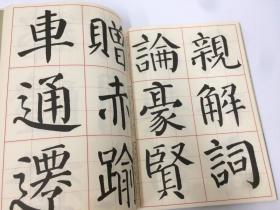 親解詞
論豪賢
贈赤踰
車通遷